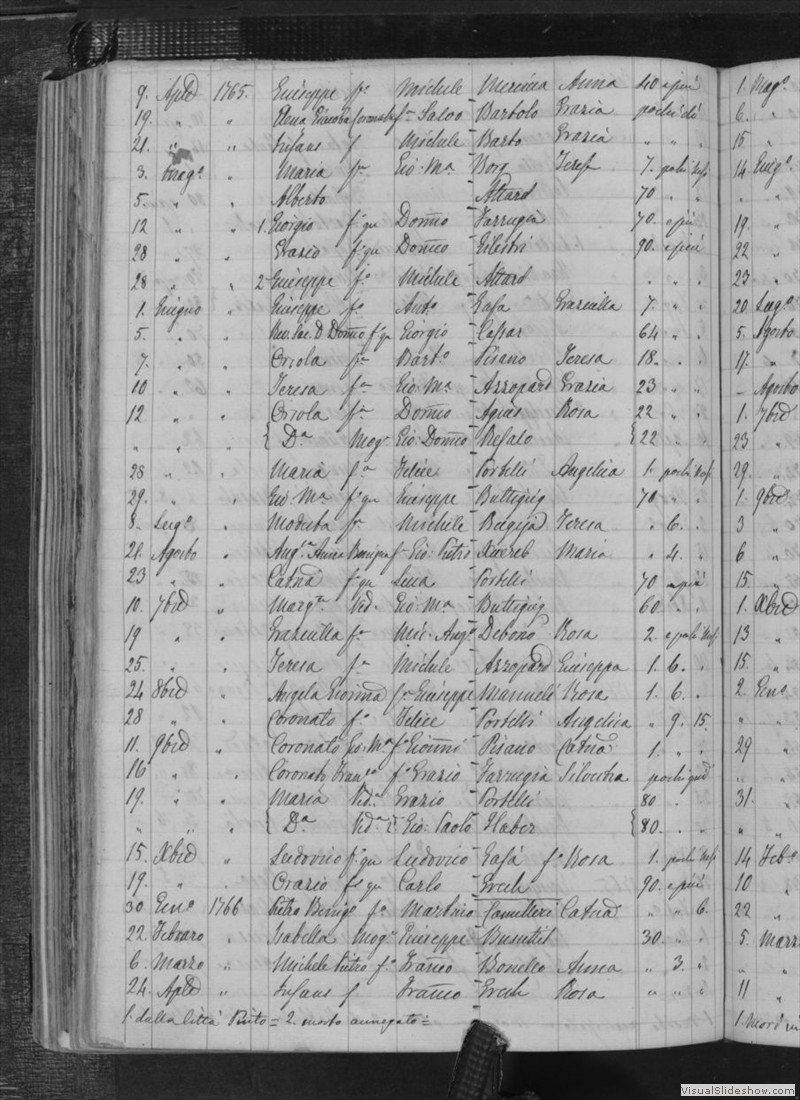 9. Aple 1765. Giuseppe fo Michele Mercieca Anna 40 e più
19. " " Elena Giacoba fo Salvo Bartolo Grazia pochi di
21. " " Infans f Michele Barto Grazia " " "
3. Magg° " Maria fa Gio: Ma Borg Teresa 7. pochi
5. " " Alberto Attard 70 " "
12 " " 1. Giorgio fo qu Domco Farrugia 70. e più
28 " " Grazio fo qu Domco Gilestri 90. e più
28 " " 2 Giuseppe fo Michele Attard " " "
1. Giugno " Giuseppe fo Anto Gafa Graziulla 7. " "
5. " " Rev. Sac. D. Domco fo qu Giorgio Caspar 64 " "
7. " " Oriola fa Barto Pisano Teresa 18. " "
10 " " Teresa fa Gio: Ma Azzopard Grazia 23 " "
12 " " Oriola fa Domco Agius Rosa 22 " "
" " " { Da Mog: Gio: Domco Refalo {22 " "
28 " " Maria fa Felice Portelli Angelica 1. pochi
29. " " Gio: Ma fo qu Giuseppe Buttigieg 70 " "
8. Lugo " Modesta fa Michele Bugeja Teresa " 6. "
21. Agosto " Anna Benigna fa Gio: Xuereb Maria " 4. "
23 " " Catna fa qu Luca Portelli 70 e più
10. 7bre " Margta Vid. Gio: Ma Buttigieg 60. " "
19 " " Graziulla fa Mic. Ango Debono Rosa 2. e pochi
25. " " Teresa fa Michele Azzopard Giuseppa 1. 6. "
24 8bre " Angela fa Giuseppe Mamueli Rosa 1. 6. "
28 " " Coronato fo Felice Portelli Angelica " 9. 15.
11. 9bre " Coronato Gio: Ma fo Gionni Pisano Catna 1. " "
16 " " Coronato Franco fo Grazio Farrugia Silvestra pochi
19. " " Maria Vida Grazio Portelli 80 "
" " " { Da Vida Gio: Paolo Haber {80. " "
15. Xbre " Ludovico fo qu Ludovico Gafà fo Rosa 1. pochi
19. " " Orazio fo qu Carlo Ercik 90. e più
30 Geno 1766 Pietro Benigo fo Martino Camilleri Catna " " 6.
22. Febraro " Isabella Mog: Giuseppe Busuttil 30. " "
6. Marzo " Michele Pietro fo Franco Bonello Anna " 3. "
24. Aple " Infans f Franco Ercik Rosa " " "
1. dalla Città Pinto = 2. morto annegato =
1. Magg°
6. "
15 "
14 Giugo
" "
19. "
22 "
23 "
20 Lugo
5. Agosto
17. "
- Agosto
1. 7bre
23 "
29. "
1. 9bre
3 "
6 "
15. "
1. Xbre
13 "
15. "
2. Geno
" "
29 "
" "
31. "
" "
14 Febo
10 "
22 "
5. Marz
" "
11 "
VisualSlideshow.com